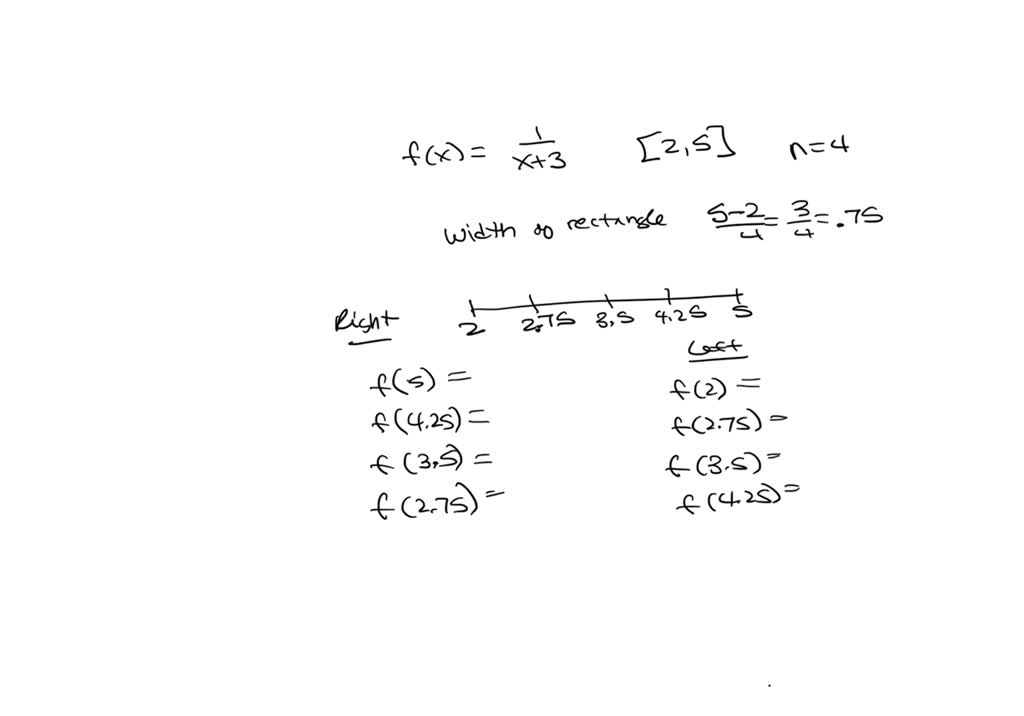 f(x) = 1/(x+3) [2,5] n=4
width of rectangle (5-2)/4 = 3/4 = .75
Right 2 2.75 3.5 4.25 5
Left
f(5) = f(2) =
f(4.25) = f(2.75) =
f(3.5) = f(3.5) =
f(2.75) = f(4.25) =